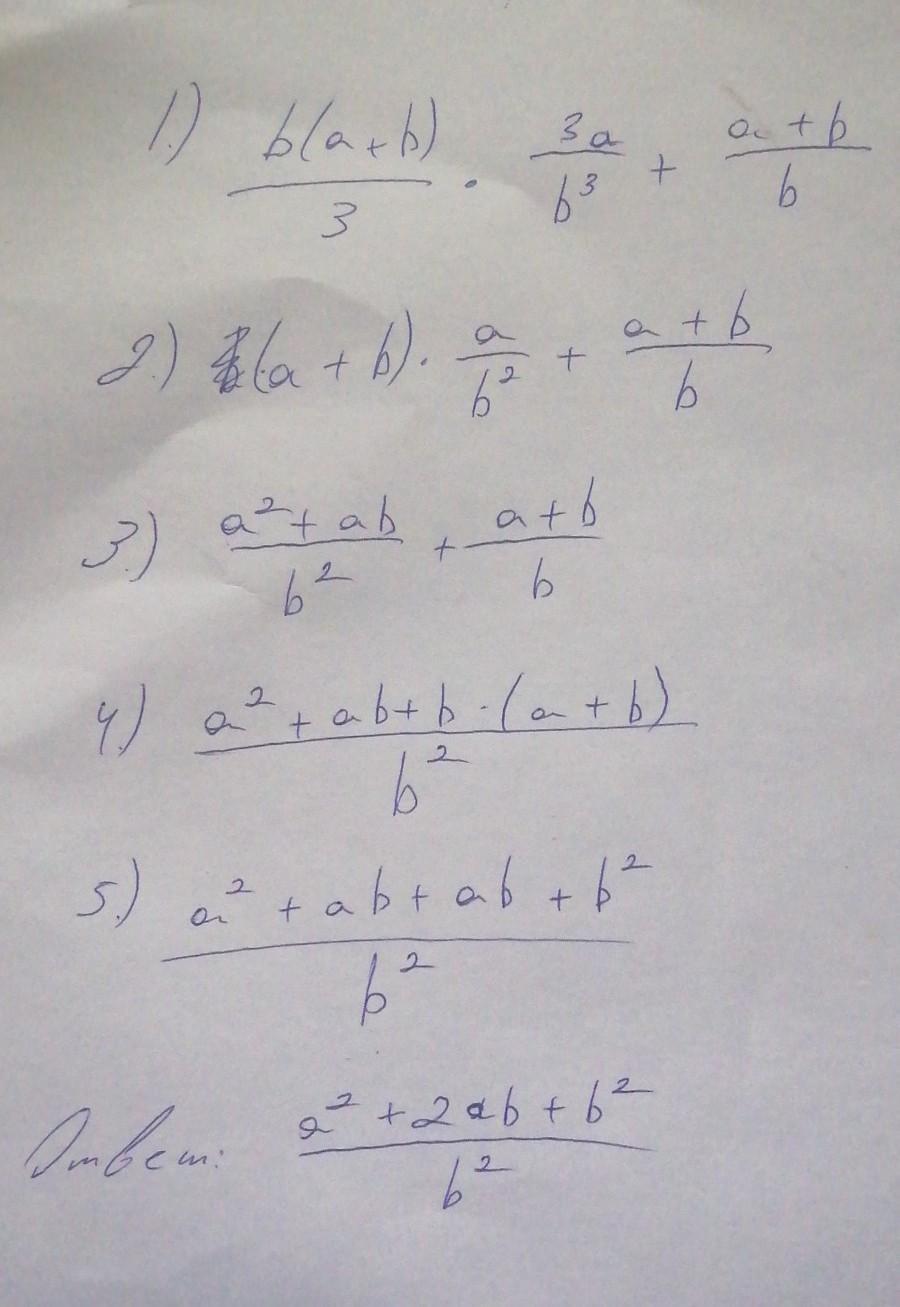 1.) b(a+b)/3 · 3a/b³ + a+b/b
2.) (a+b) · a/b² + a+b/b
3.) a²+ab/b² + a+b/b
4) a²+ab+b·(a+b)/b²
5.) a²+ab+ab+b²/b²
Ответ: a²+2ab+b²/b²